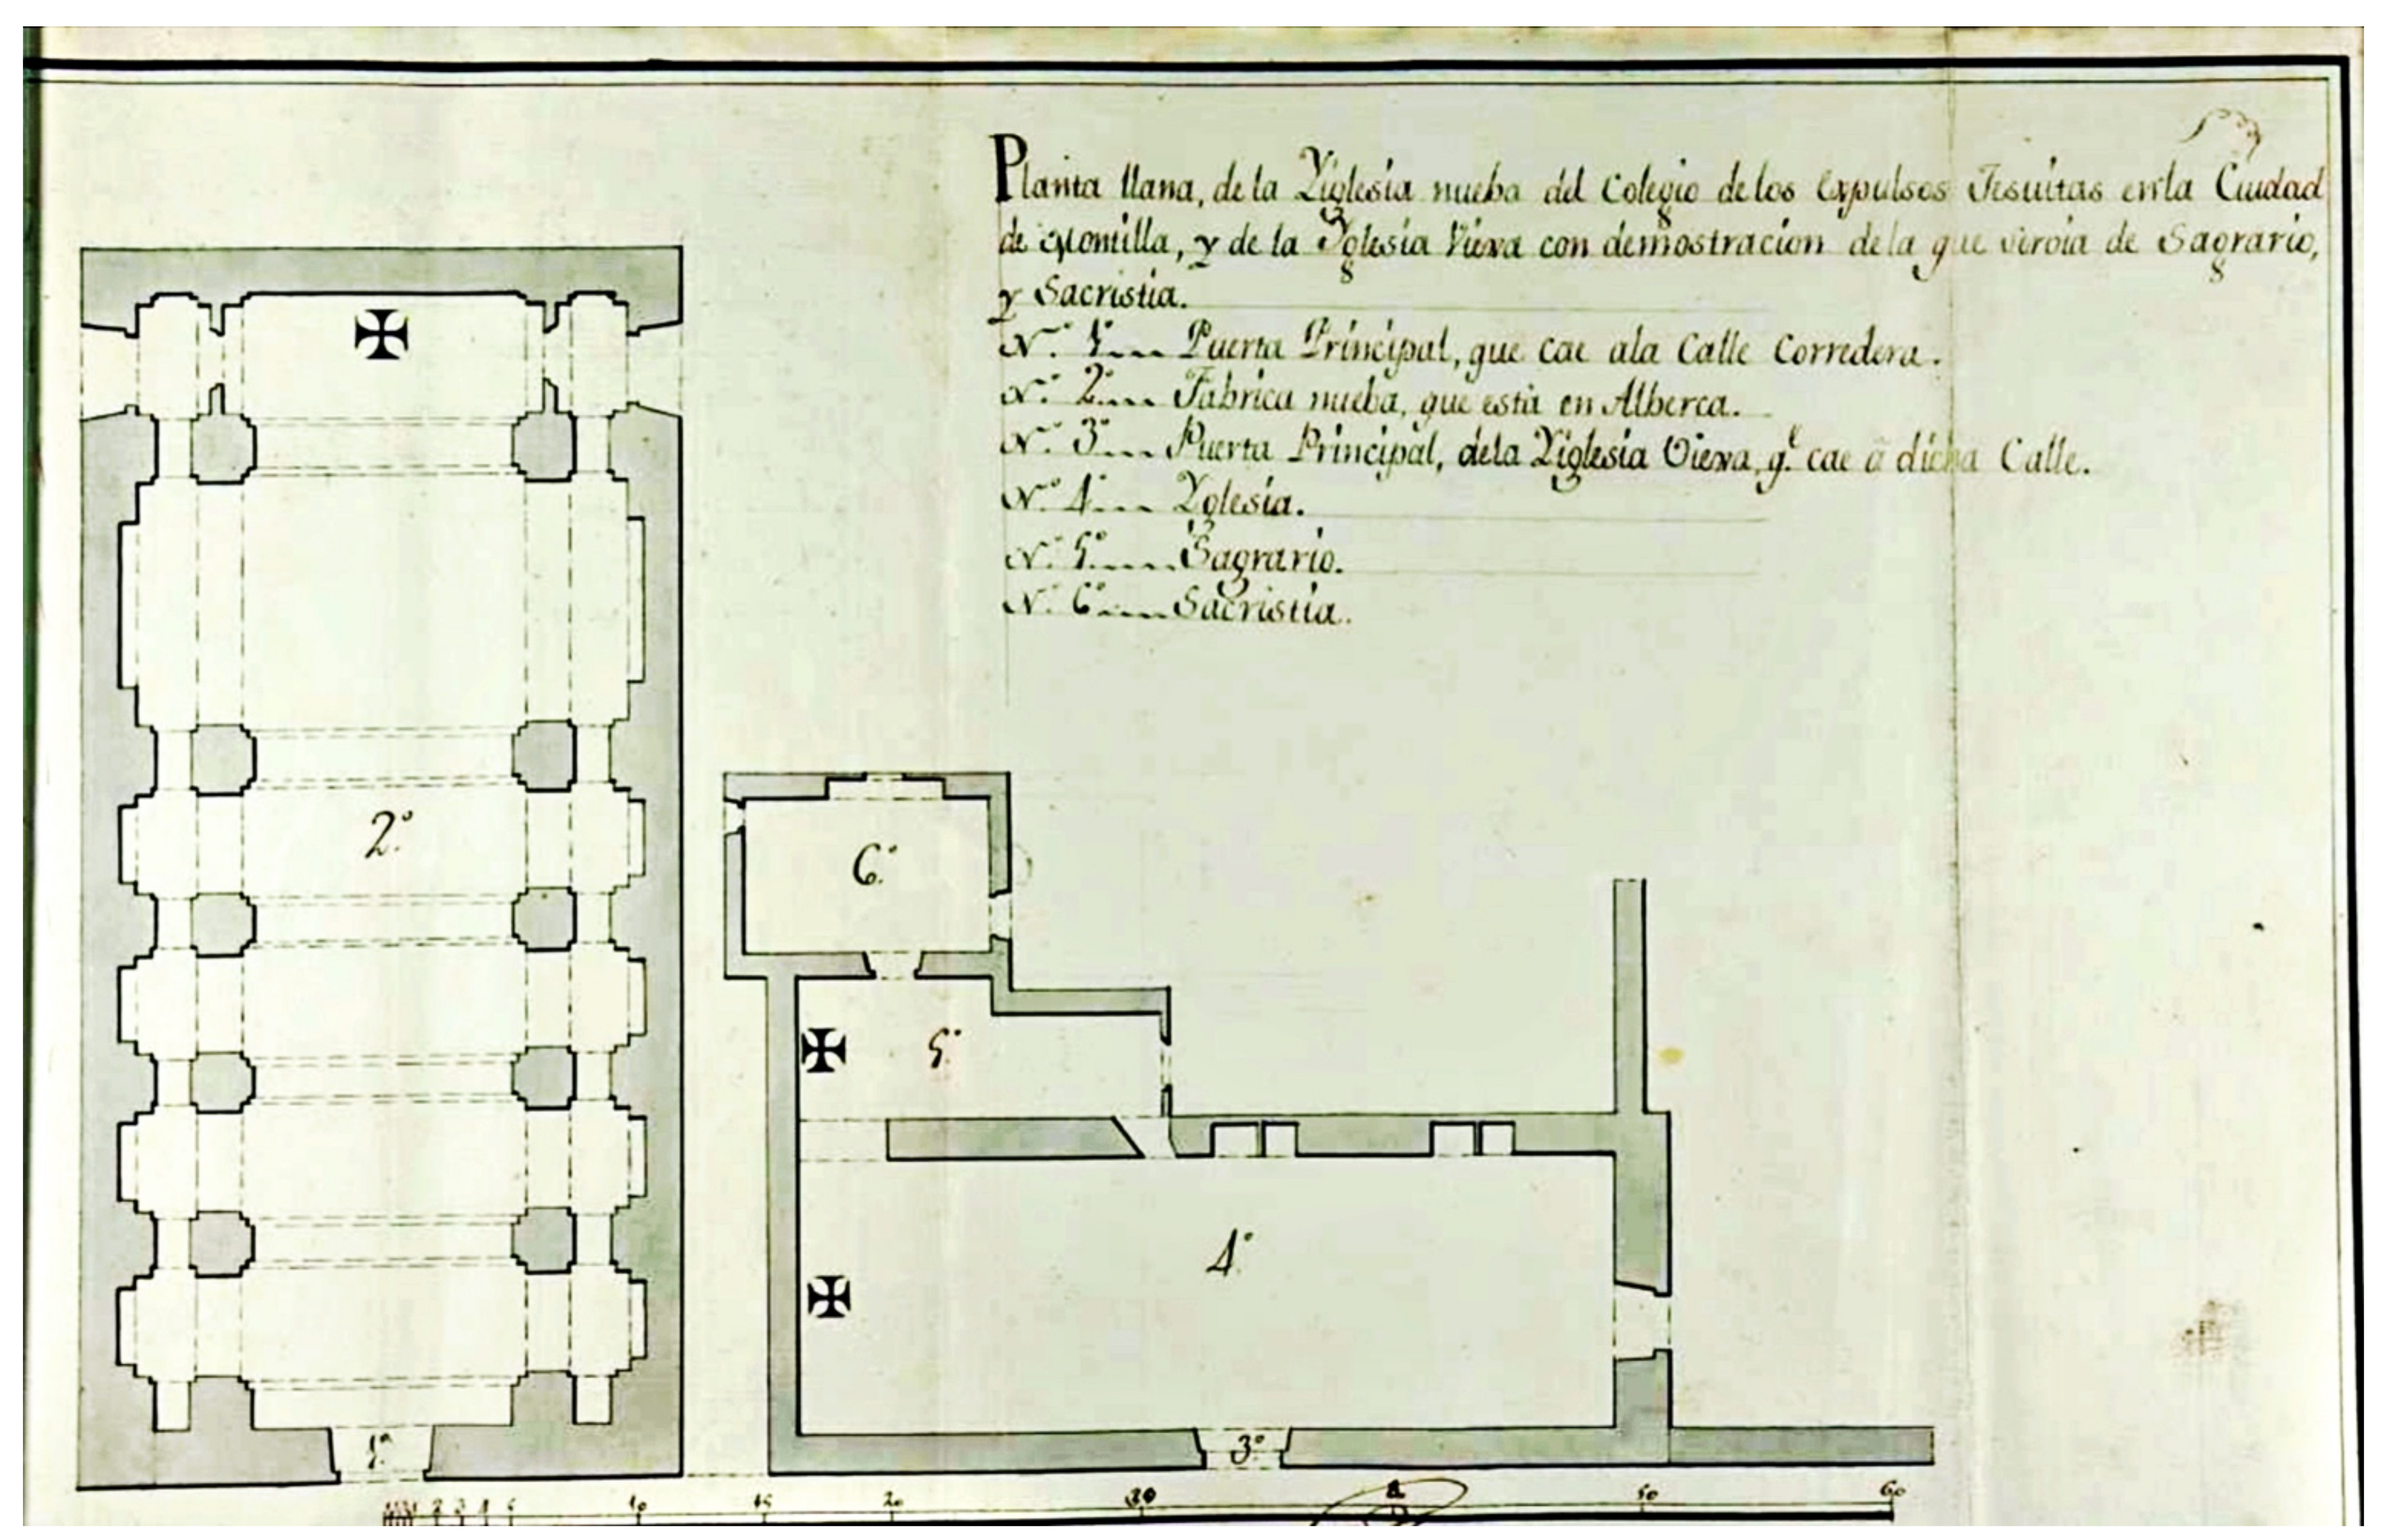 Planta llana, de la Yiglesia nueba del Colegio de los Expulsos Jesuitas en la Ciudad
de Montilla, y de la Yglesia Viexa con demostracion de la que servia de Sagrario,
y Sacristia.
N.º 1º Puerta Principal, que cae ala Calle Corredera.
N.º 2º Fabrica nueba, que està en Alberca.
N.º 3º Puerta Principal, dela Yiglesia Viexa, q.e cae â dicha Calle.
N.º 4º Yglesia.
N.º 5º Sagrario.
N.º 6º Sacristia.
2º
6º
5º
4º
1º
3º
1 2 3 4 5 10 15 20 30 50 60